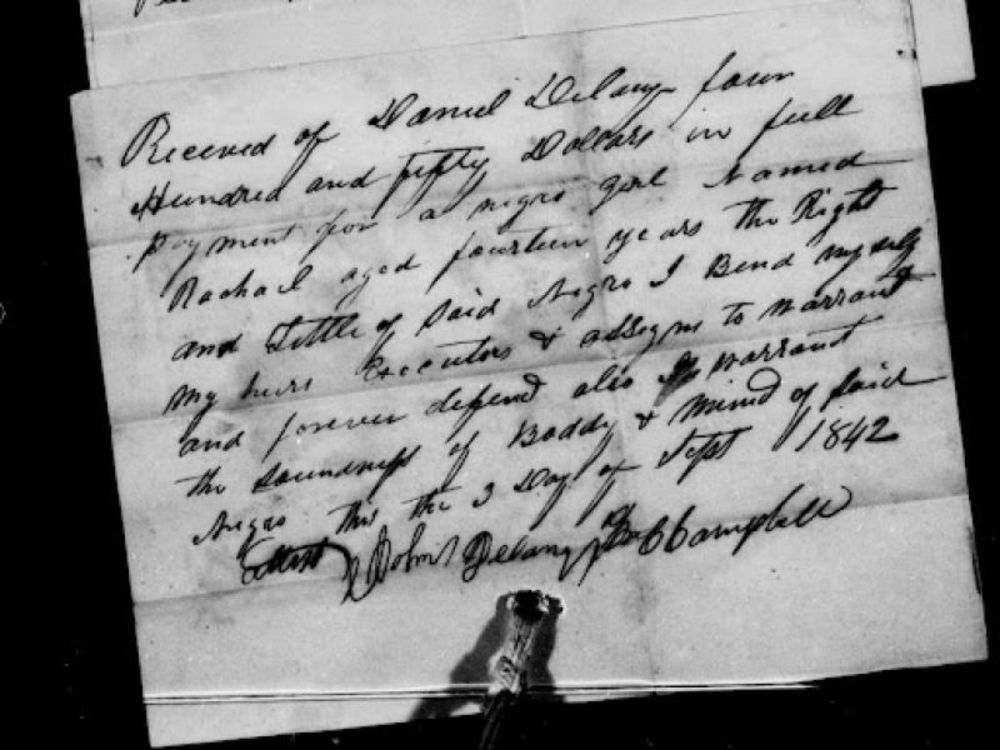 Received of Daniel Delany four
Hundred and fifty Dollars in full
payment for a negro girl Named
Rachael aged fourteen years the Right
and Tittle of Said Negro I Bend myself
my heirs Executors & assigns to warrant
and forever defend also warrant
the soundness of Boddy & mind of Said
Negro this the 3 Day of Sept 1842
Attest John Delany Campbell